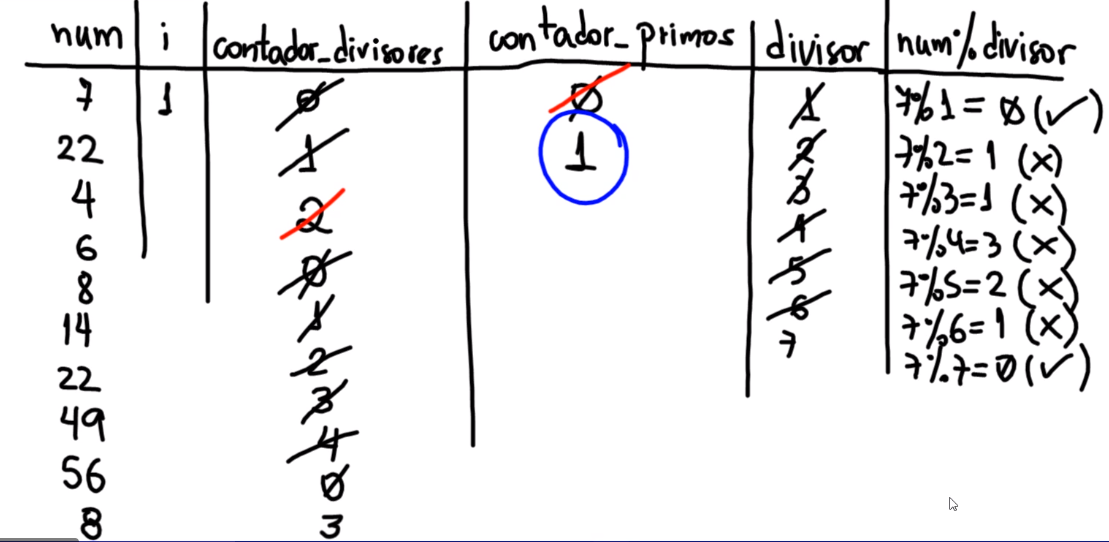 num i contador_divisores contador_primos divisor num%divisor
7 1 0 0 1 7%1=0(✓)
22 1 1 2 7%2=1 (×)
4 2 3 7%3=1 (×)
6 0 4 7%4=3 (×)
8 1 5 7%5=2 (×)
14 2 6 7%6=1 (×)
22 3 7 7%7=0(✓)
49 4
56 0
8 3